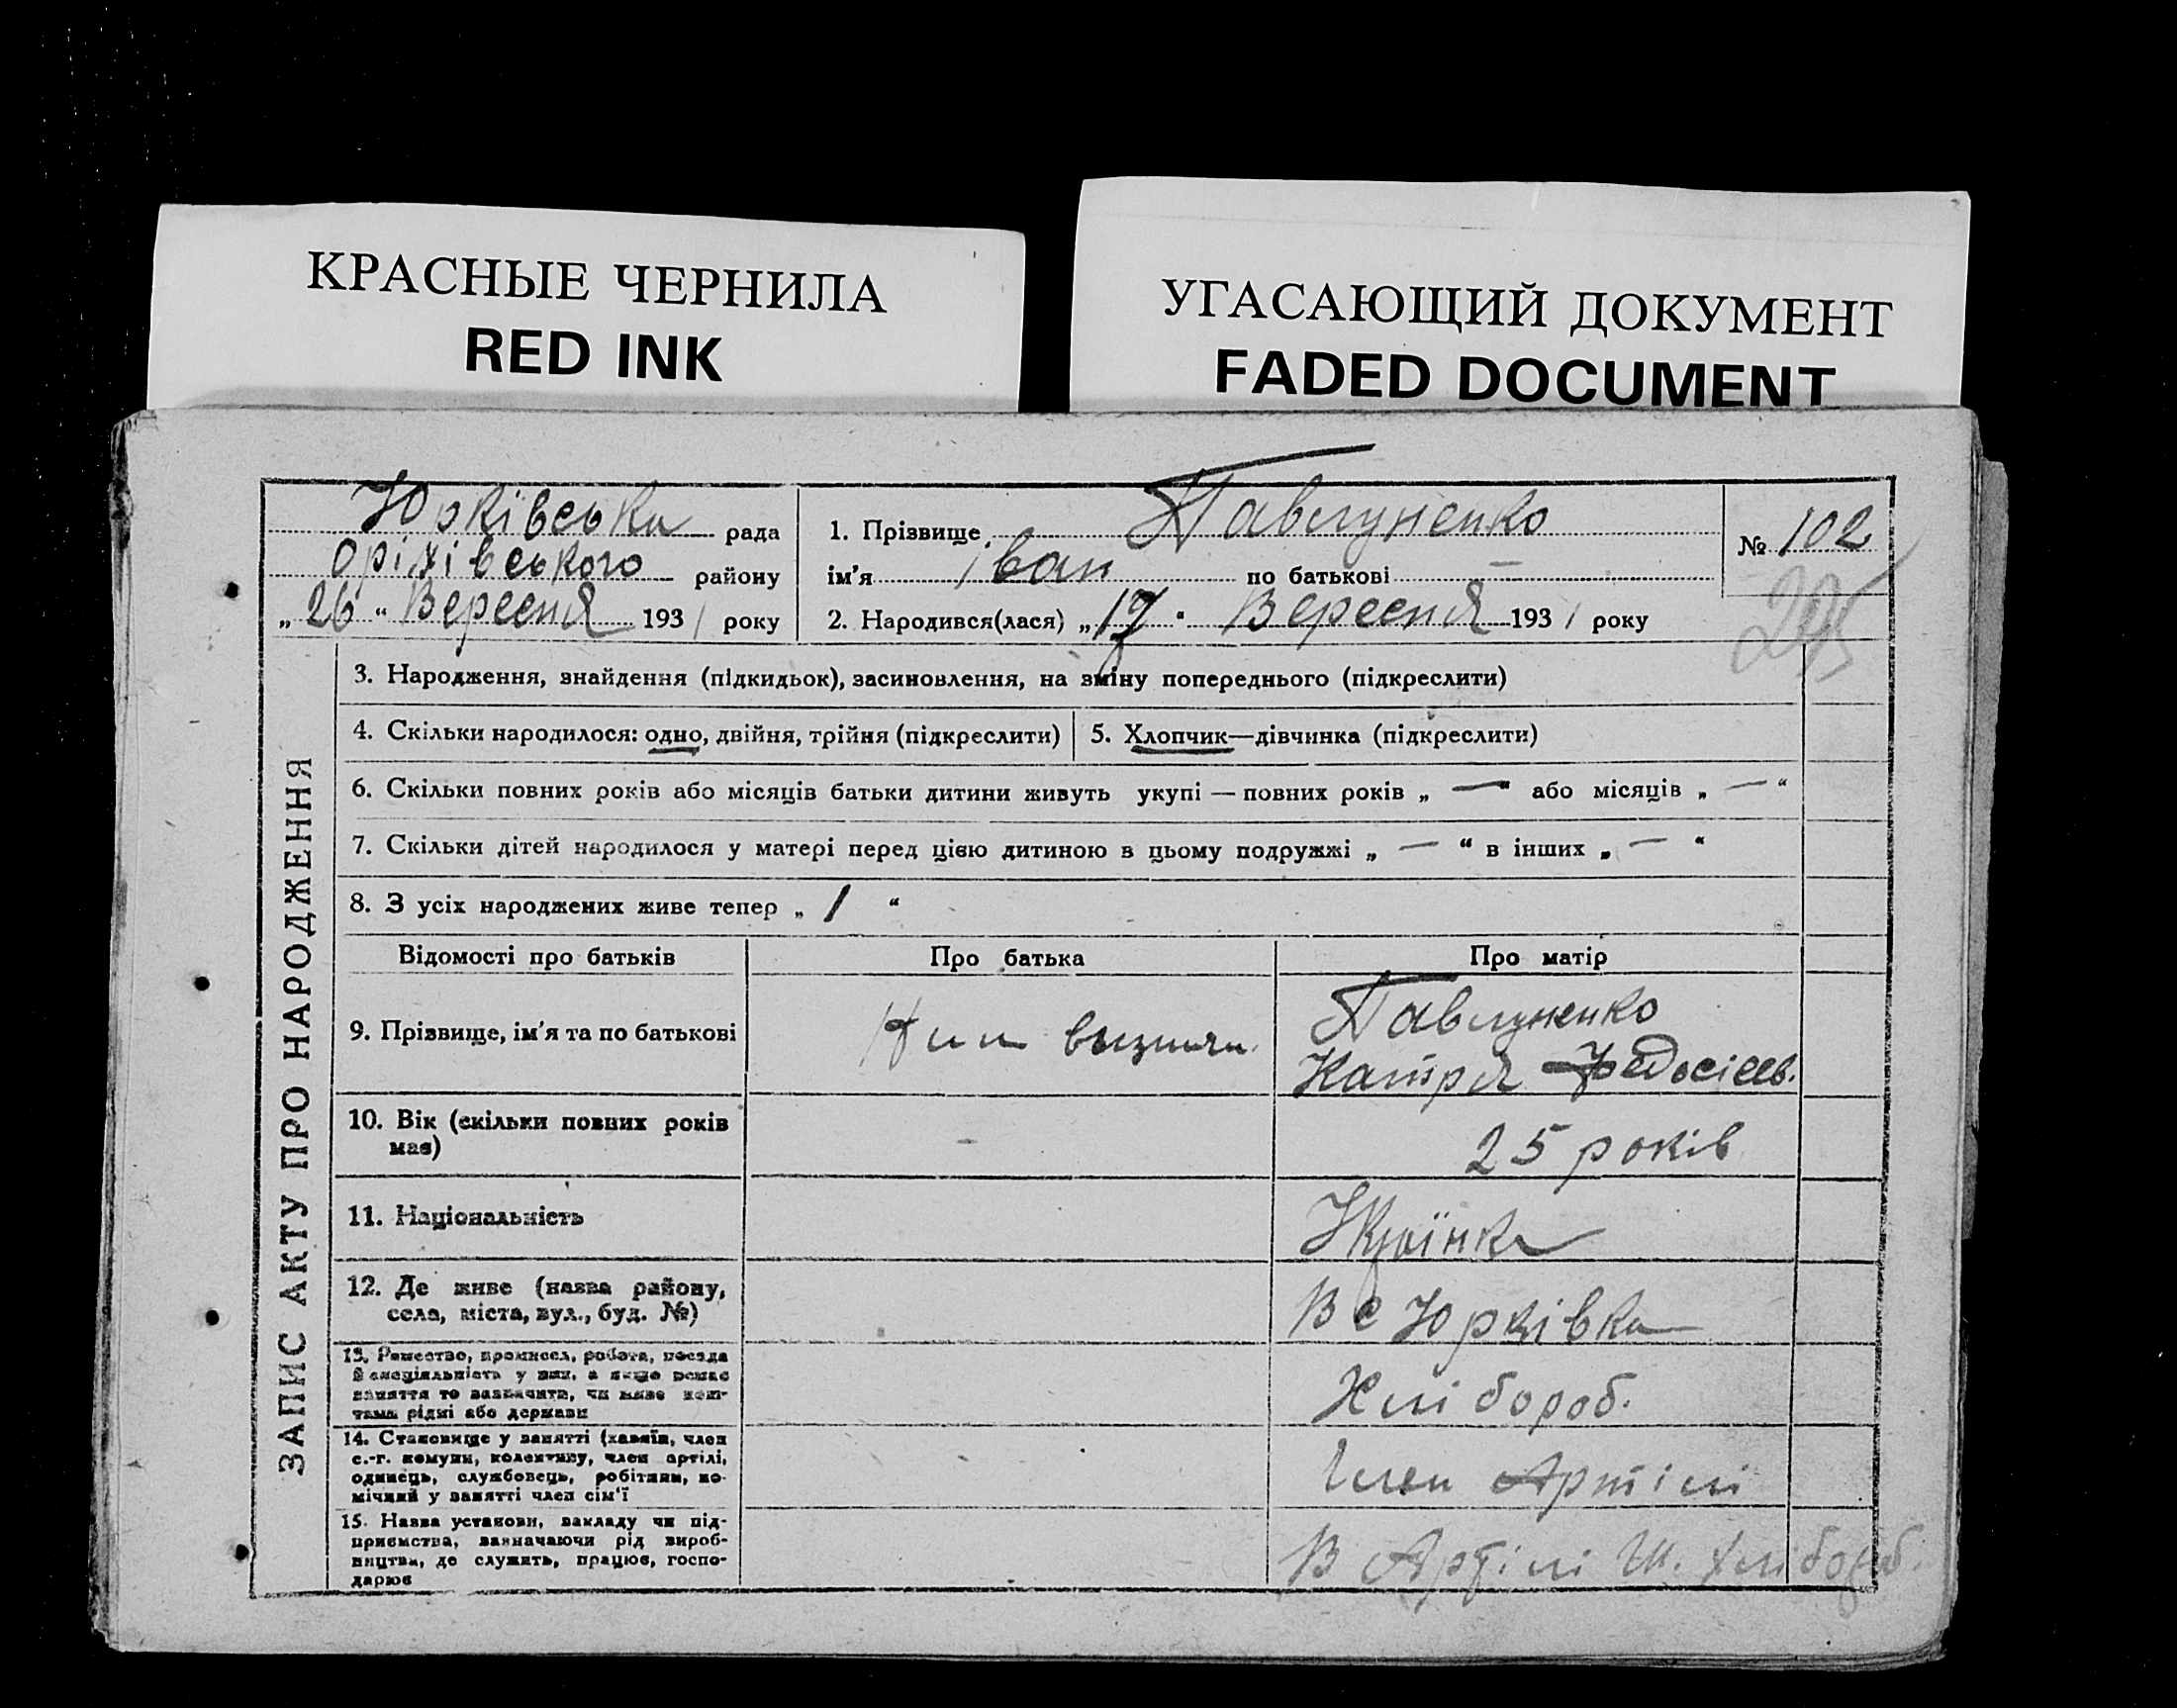 КРАСНЫЕ ЧЕРНИЛА
RED INK
УГАСАЮЩИЙ ДОКУМЕНТ
FADED DOCUMENT
Юрківська рада
Оріхівського району
„26“ Вересня 1931 року
1. Прізвище Павлуненко
ім'я Іван по батькові —
2. Народився(лася) „17“ Вересня 1931 року
№ 102
ЗАПИС АКТУ ПРО НАРОДЖЕННЯ
3. Народження, знайдення (підкидьок), засиновлення, на зміну попереднього (підкреслити)
4. Скільки народилося: одно, двійня, трійня (підкреслити)
5. Хлопчик—дівчинка (підкреслити)
6. Скільки повних років або місяців батьки дитини живуть укупі — повних років „ — “ або місяців „ — “
7. Скільки дітей народилося у матері перед цією дитиною в цьому подружжі „ — “ в інших „ — “
8. З усіх народжених живе тепер „ 1 “
Відомості про батьків Про батька Про матір
9. Прізвище, ім'я та по батькові
Павлуненко
Катря Федосіев.
10. Вік (скільки повних років має)
-
25 років
11. Національність
Украінка
12. Де живе (назва району,
села, міста, вул., буд. №)
В с Юрківка
13. Ремество, промисел, робота, посада
й спеціяльність у них, а якщо немає
заняття то зазначити, чи живе кош-
тами рідні або держави
Хлібороб.
14. Становище у занятті (хазяїн, член
с.-г. комуни, колективу, член артілі,
одинець, службовець, робітник, по-
мічний у занятті член сім'ї
Член Артілі
15. Назва установи, закладу чи під-
приємства, зазначаючи рід вироб-
ництва, де служить, працює, госпо-
дарює
В Артілі Ш. Хлібороб.